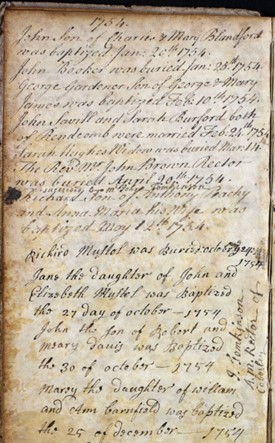 1754.
John Son of Charles & Mary Blandford
was baptized Jan: 20th 1754.
John Booker was buried Jan: 25th 1754.
George Gardener Son of George & Mary
James was baptized Feb: 10th 1754.
John Savill and Sarah Burford both
of Rendcomb were married Feb: 26th 1754.
Sarah Hughes Widow was buried Mar: 14th
The Revd Mr John Brown Rector
was buried April 20th 1754.
Richard Son of Anthony
and Anna Maria his Wife was
baptized May 12th 1754.
Was Buried october 24
1754
Jane the daughter of John and
Elizebeth Mullol was Baptized
the 27 day of october — 1754
John the son of Robert and
meary davis was Baptized
the 30 of october — 1754
Marey the daughter of wellam
and Ann barnfield was baptized
the 25 of december — 1754
J Tomkinson
A.M. Rector of